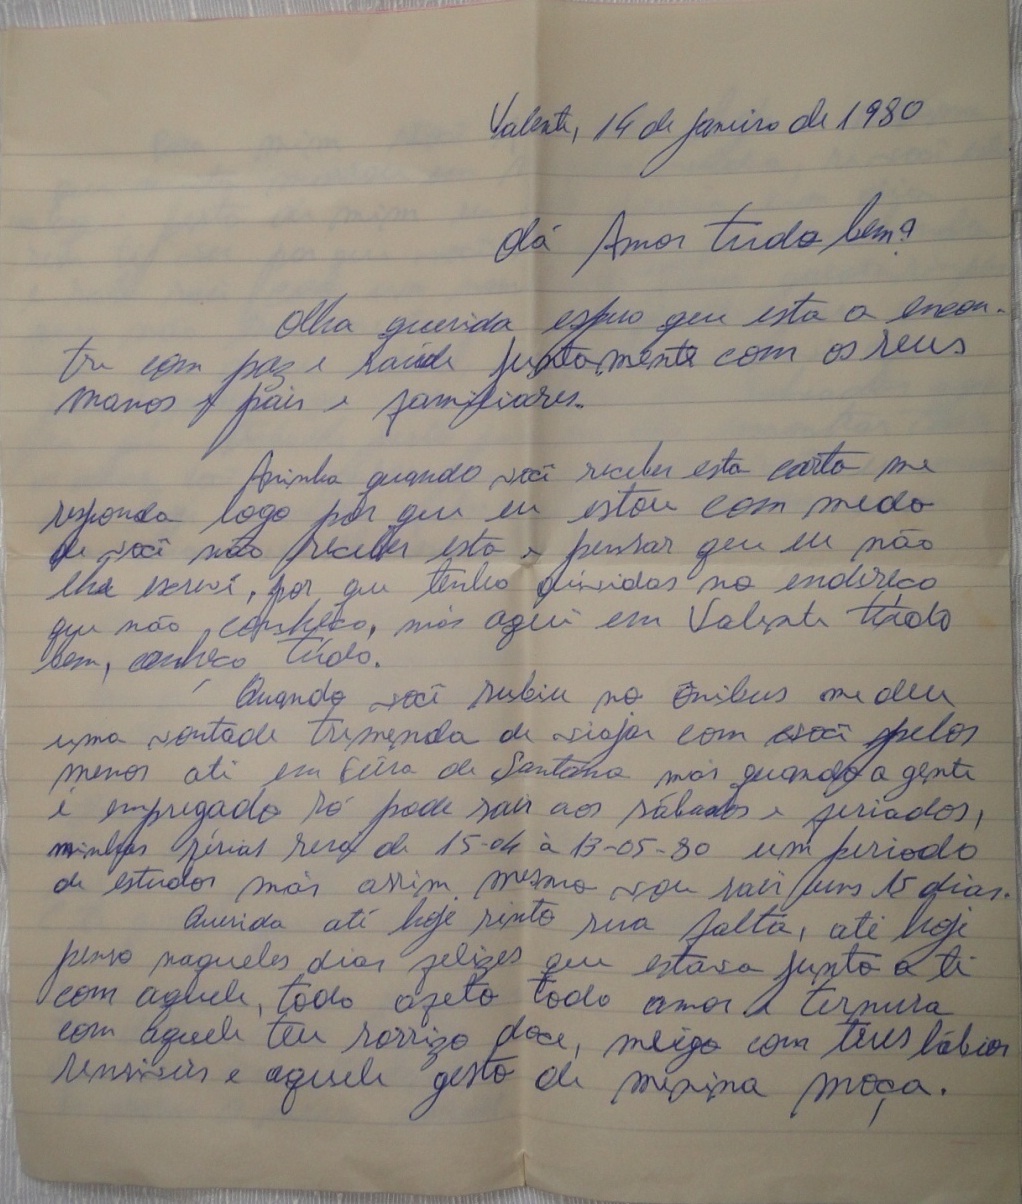 Valente, 14 de janeiro de 1980
Olá Amor tudo bem?
Olha querida espero que esta a encon-
tre com paz e saúde juntamente com os seus
manos e pais e familiares.
Aninha quando você receber esta carta me
responda logo por que eu estou com medo
de você não receber esta e pensar que eu não
lhe escrevi, por que tenho dúvidas no endereço
que não conheço, más aqui em Valente túdo
bem, conheço túdo.
Quando você subiu no ônibus me deu
uma vontade tremenda de viajar com você pelos
menos até em Feira de Santana más quando a gente
é empregado só pode sair aos sábados e feriados,
minhas férias sera de 15-04 à 13-05-80 um periodo
de estudos más assim mesmo vou sair uns 15 dias.
Querida até hoje sinto sua falta, até hoje
penso naqueles dias felizes que estava junto a ti
com aquele, todo afeto todo amor e ternura
com aquele teu sorrizo doce, meigo com teus lábios
sensiveis e aquele gesto de menina moça.